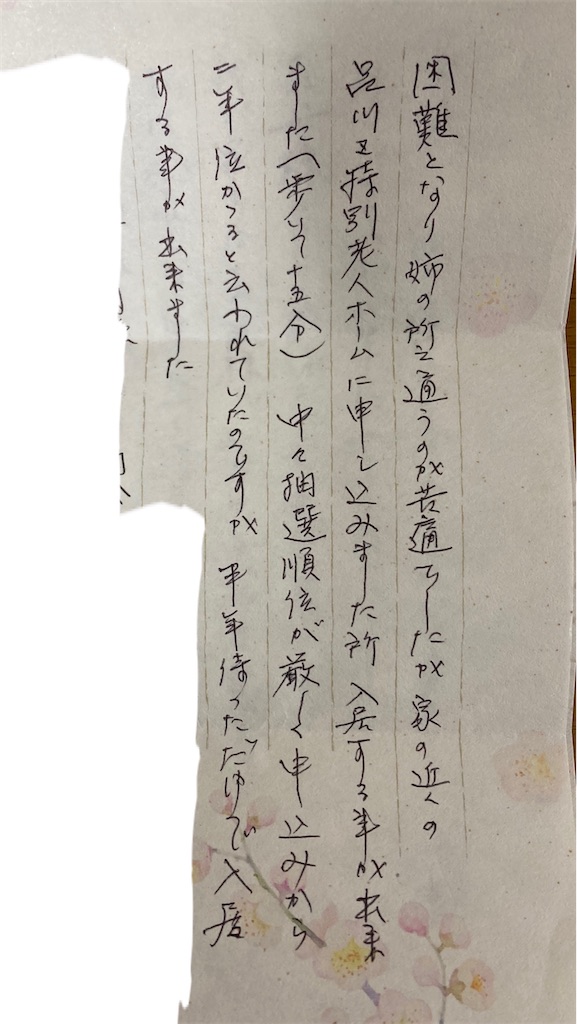 困難となり姉の所え通うのが苦痛でしたが家の近くの
品川区特別老人ホームに申し込みました所 入居する事が出来
ました(歩いて十五分) 中々抽選順位が厳しく申し込みから
二年位かゝると云われていたのですが 半年待っただけで入居
する事が出来ました